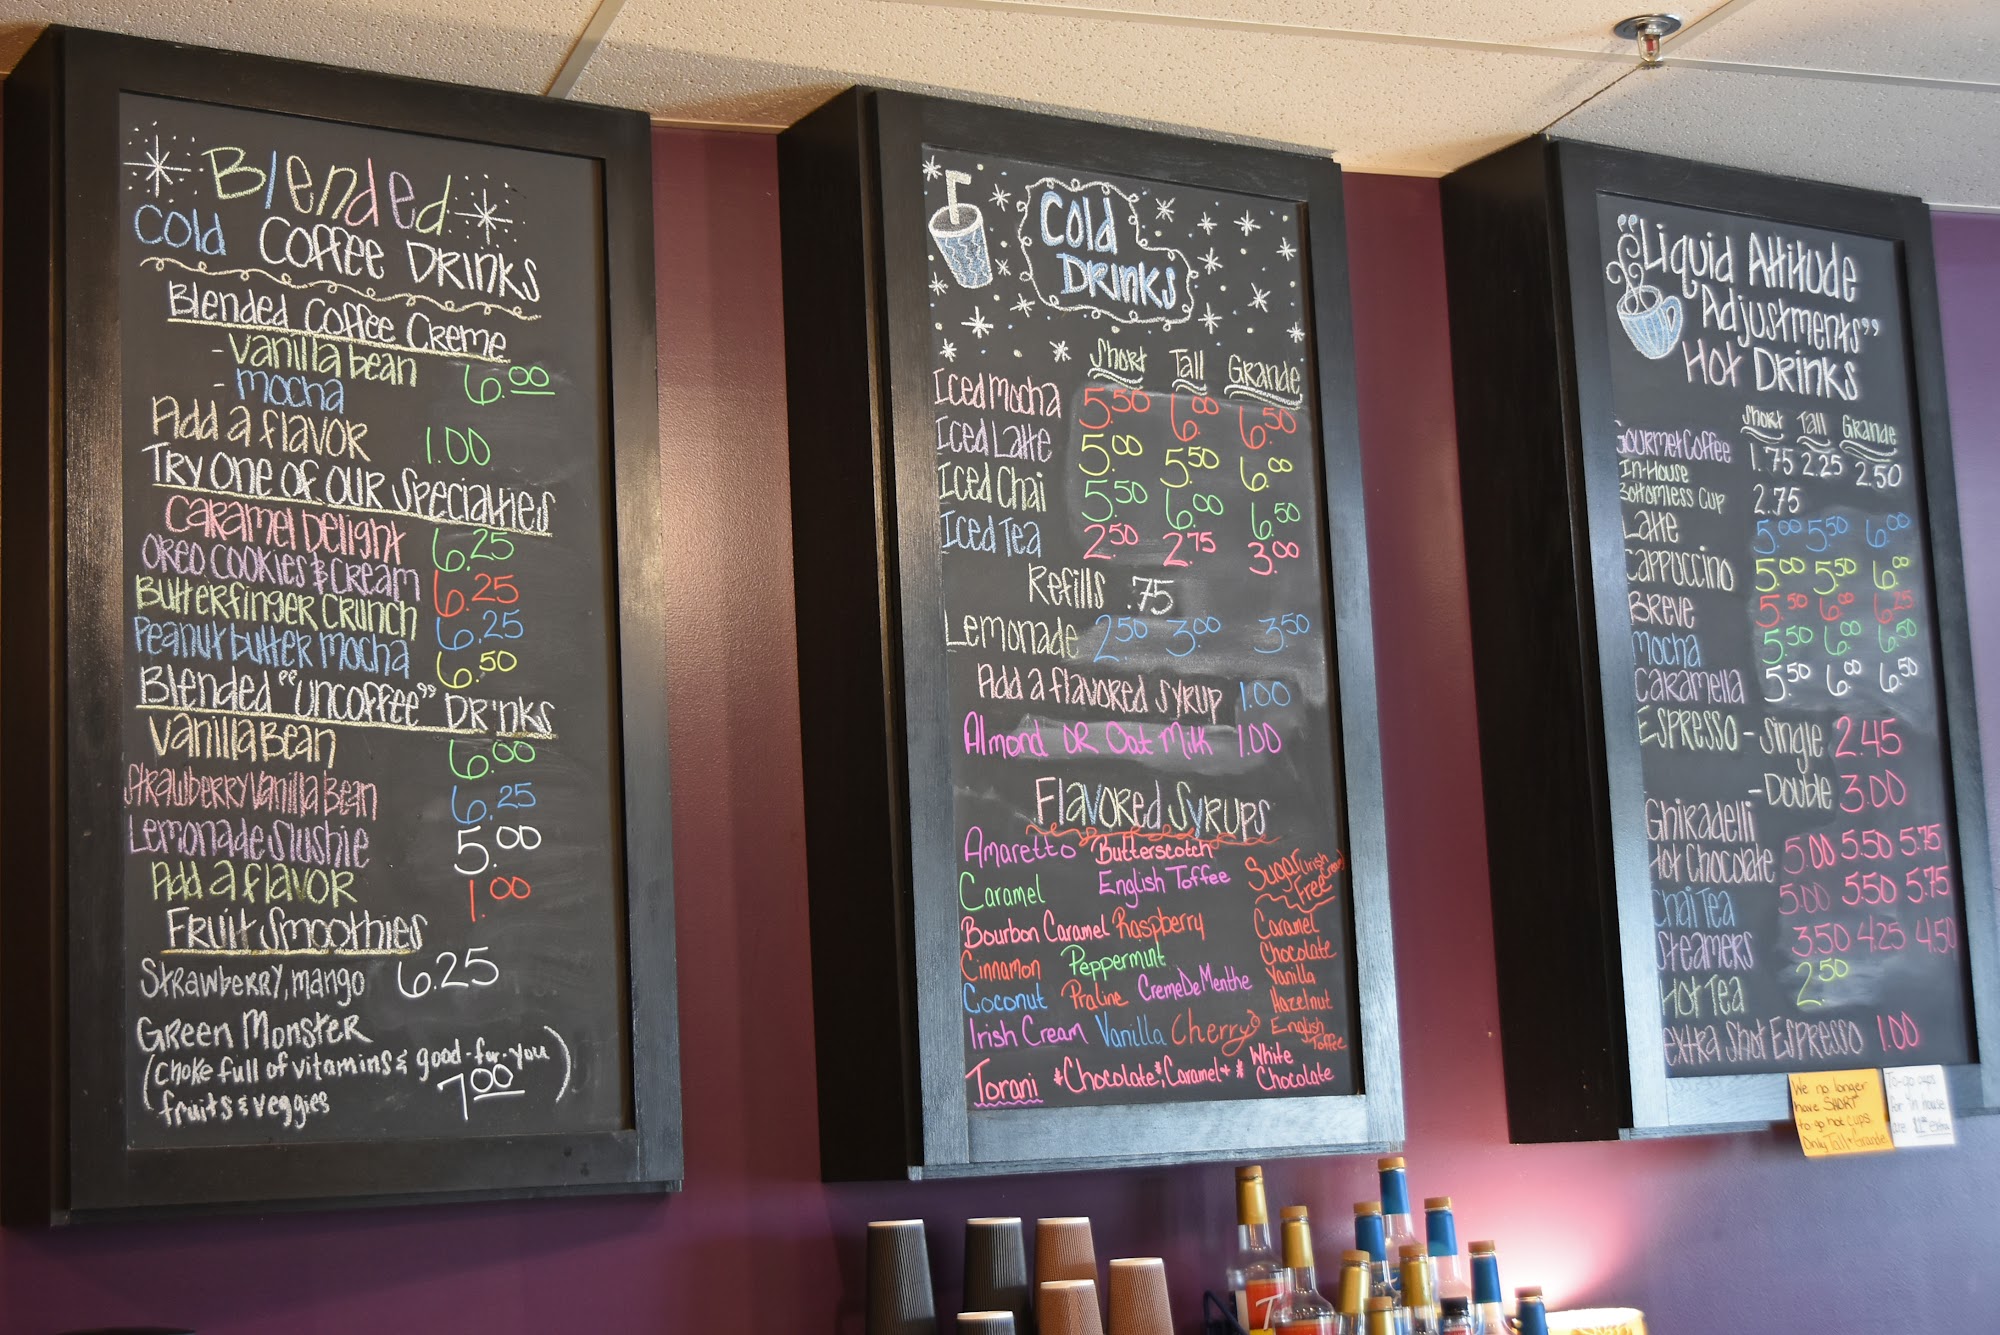 Blended
Cold Coffee Drinks
Blended Coffee Creme
- Vanilla bean
- mocha 6.00
Add a flavor 1.00
Try one of our Specialties
Caramel Delight 6.25
Oreo Cookies & Cream 6.25
Butterfinger Crunch 6.25
Peanut butter mocha 6.50
Blended "Uncoffee" Dr'nks
Vanilla Bean 6.00
Strawberry Vanilla Bean 6.25
Lemonade Slushie 5.00
Add a flavor 1.00
Fruit Smoothies
Strawberry, mango 6.25
Green Monster
(choke full of vitamins & good-for-you
fruits & veggies 7.00)
Cold
Drinks
Short Tall Grande
Iced Mocha 5.50 6.00 6.50
Iced Latte 5.00 5.50 6.00
Iced Chai 5.50 6.00 6.50
Iced Tea 2.50 2.75 3.00
Refills .75
Lemonade 2.50 3.00 3.50
Add a flavored syrup 1.00
Almond OR Oat Milk 1.00
Flavored Syrups
Amaretto Butterscotch
Caramel English Toffee
Bourbon Caramel Raspberry
Cinnamon Peppermint
Coconut Praline Creme De Menthe
Irish Cream Vanilla Cherry
Sugar (irish
Free
Caramel
Chocolate
Vanilla
Hazelnut
English
Toffee
Torani *Chocolate* Caramel * * White
Chocolate
"Liquid Attitude
Adjustments"
Hot Drinks
Short Tall Grande
Gourmet Coffee 1.75 2.25 2.50
In-House
Bottomless Cup 2.75
Latte 5.00 5.50 6.00
Cappuccino 5.00 5.50 6.00
Breve 5.50 6.00 6.25
Mocha 5.50 6.00 6.50
Caramella 5.50 6.00 6.50
Espresso - Single 2.45
- Double 3.00
Ghiradelli
Hot Chocolate 5.00 5.50 5.75
Chai Tea 5.00 5.50 5.75
Steamers 3.50 4.25 4.50
Hot Tea 2.50
extra Shot Espresso 1.00
We no longer
have SHORT
to go hot cups.
Only Tall & Grande
To-go cups
for in house
are extra